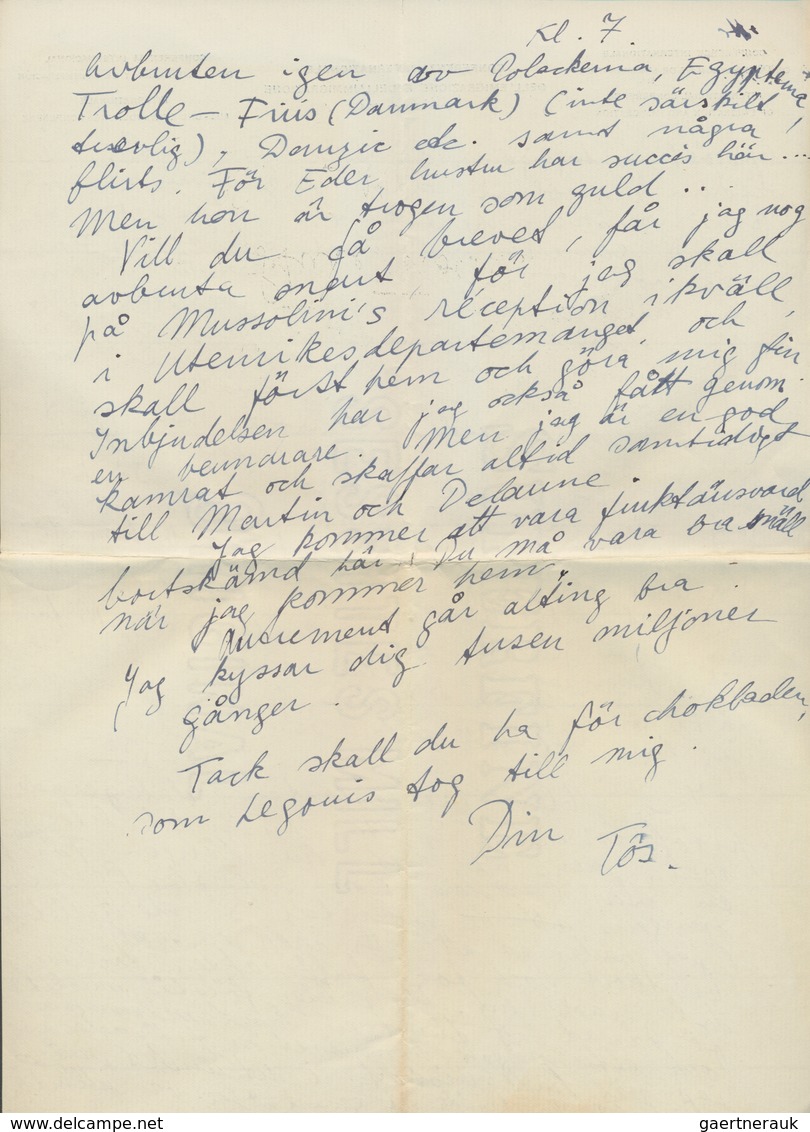 Kl. 7
Avbruten igen av Polackerna, Egypterna
Trolle - Friis (Danmark) (inte särskilt
trevlig), Danzig etc. samt några
flirts. För Eder hustru har succès här...
Men hon är trogen som guld ..
Vill du få brevet, får jag nog
avbruta snart, för jag skall
på Mussolini's réception ikväll,
i Utenrikesdepartemanget, och
skall först hem och göra mig fin
Inbjudelsen har jag också fått genom
en beundrare. Men jag är en god
kamrat och skaffar altid samtidigt
till Martin och Delaune.
Jag kommer att vara
bortskämd här. Du må vara bra snäll
när jag kommer hem.
Autrement går alting bra.
Jag kyssar dig tusen miljoner
gånger.
Tack skall du ha för chokladen,
som Legouis tog till mig.
Din
Tös.
delcampe.net
gaertnerauk